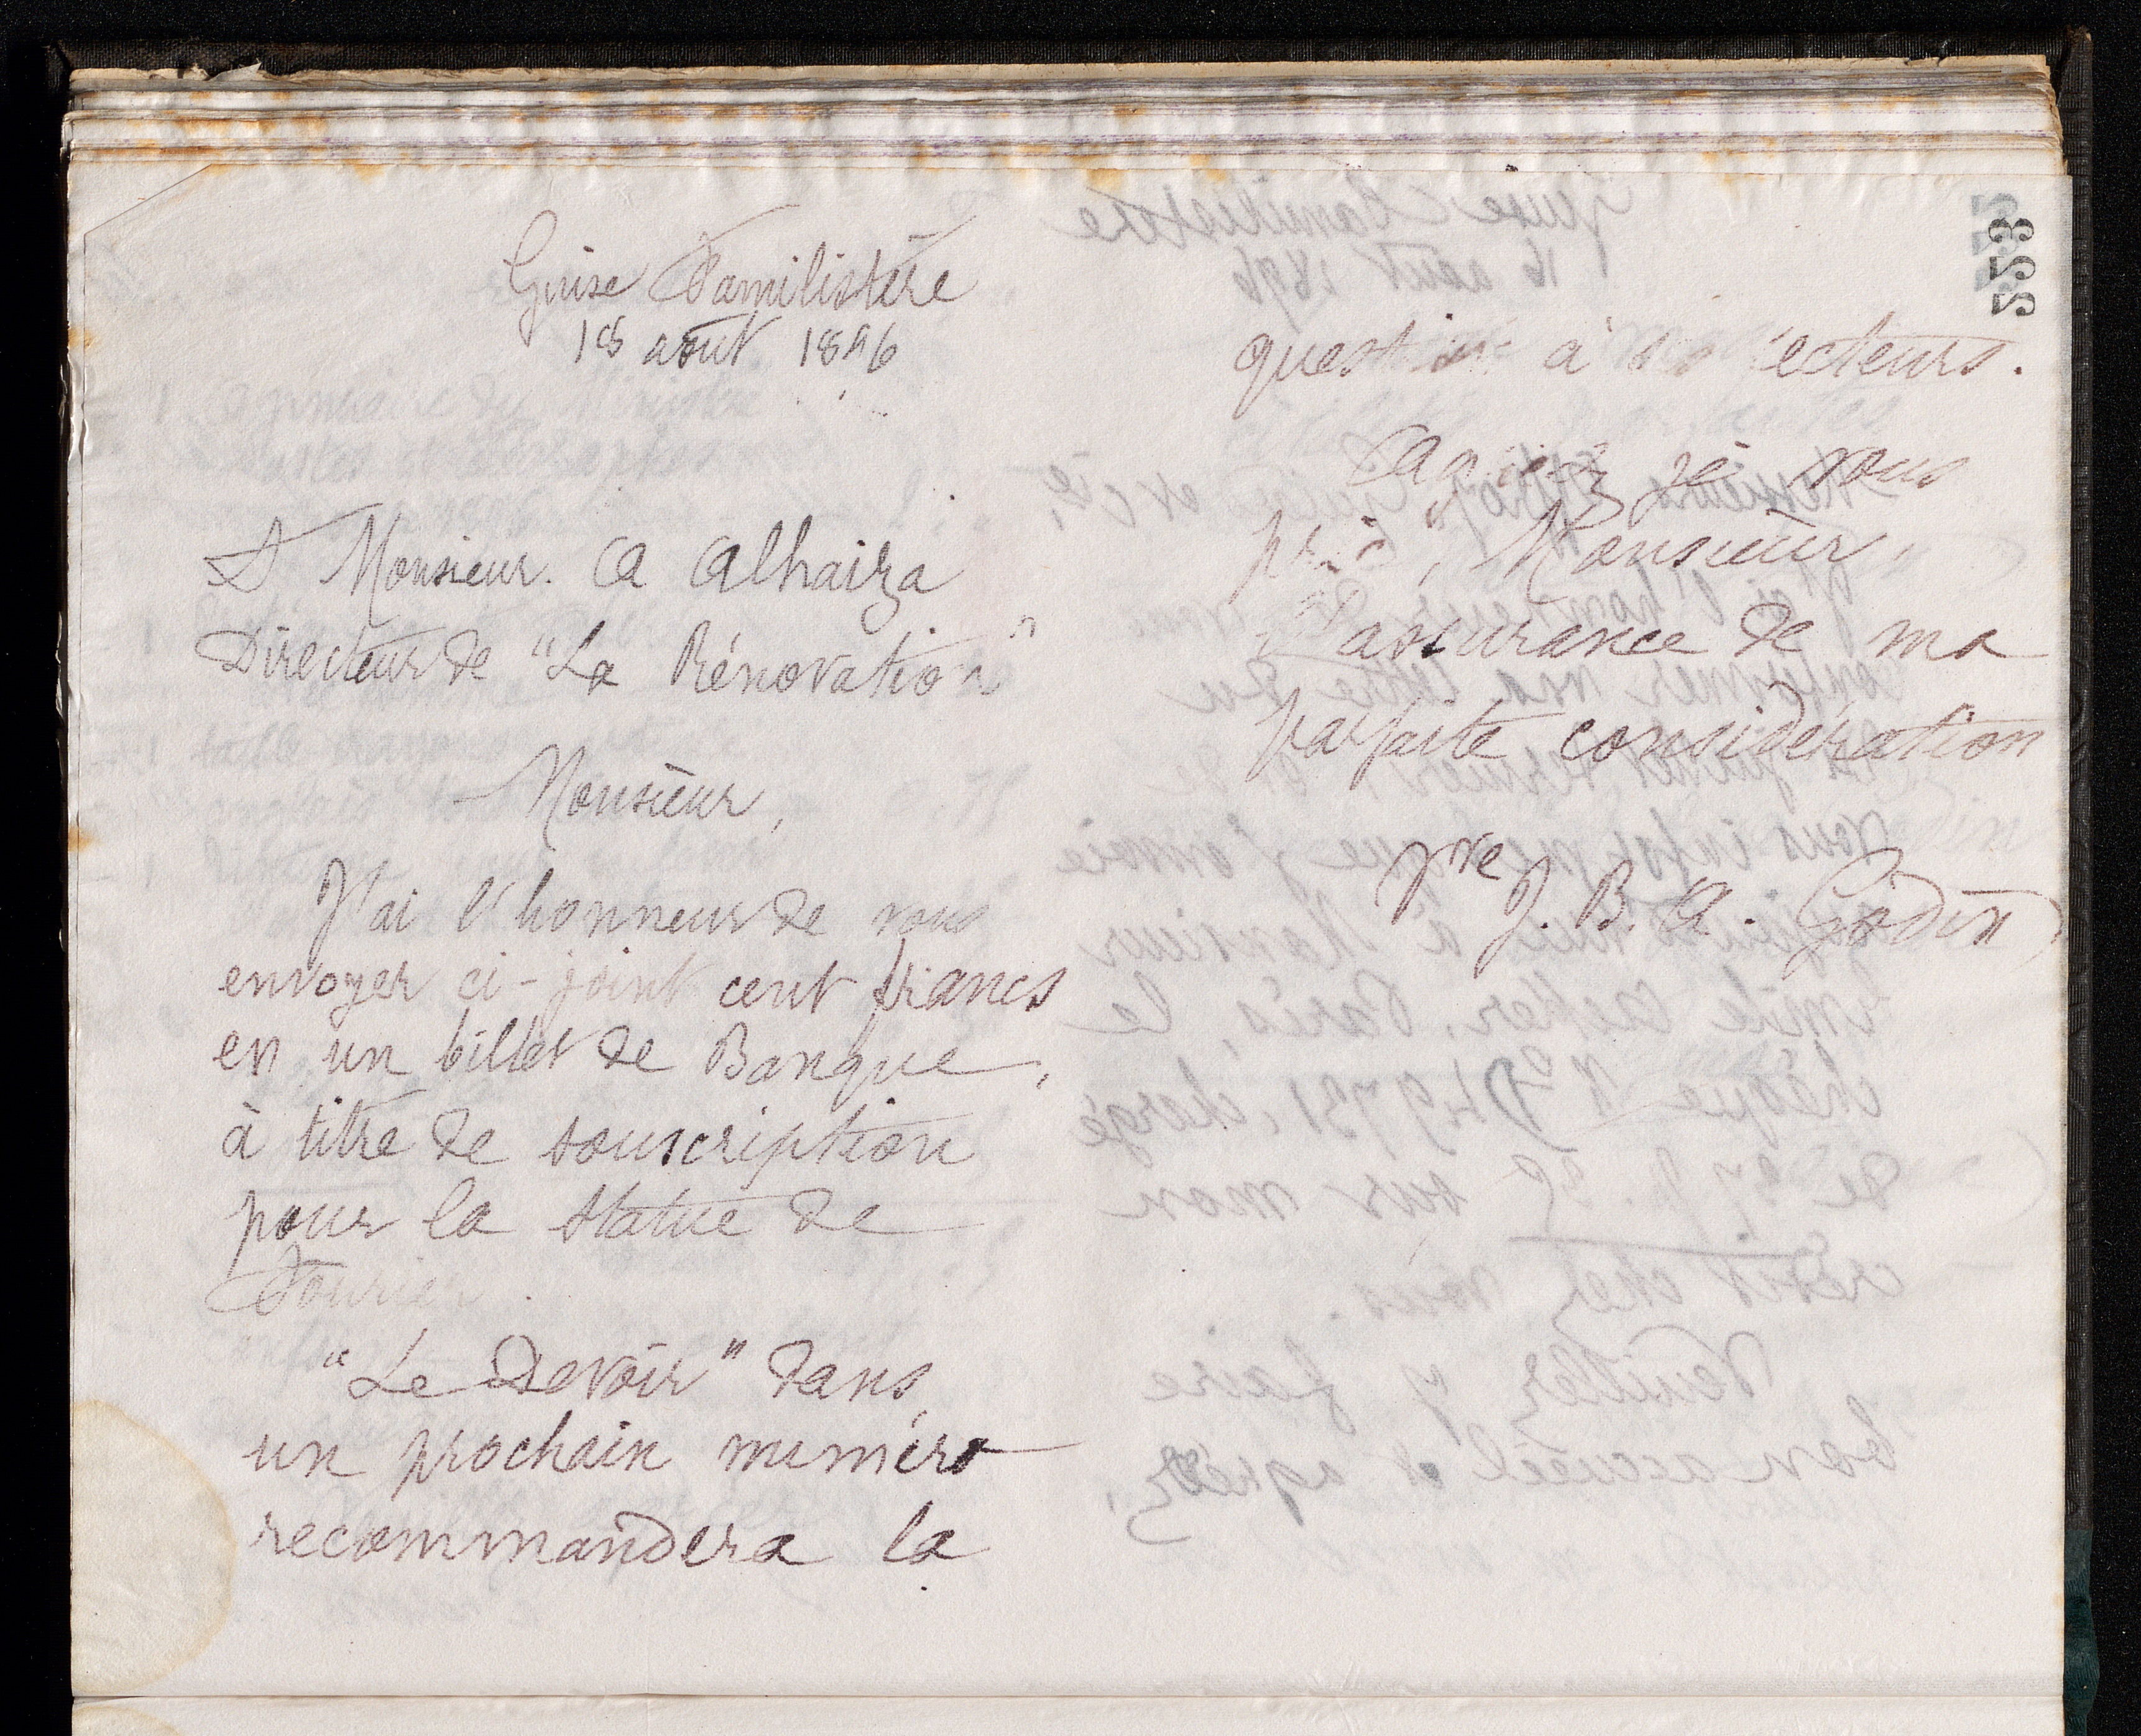 Guise Familistère
18 août 1896
A Monsieur. A Alhaiza
Directeur de "La Rénovation"
Monsieur,
J'ai l'honneur de vous
envoyer ci-joint cent francs
en un billet de Banque,
à titre de souscription
pour la statue de
Fourier.
"Le Devoir" dans
un prochain numéro
recommandera la
553
question à ses lecteurs.
Agréez je vous
prie, Monsieur,
l'assurance de ma
parfaite considération
Vve J. B. A. Godin